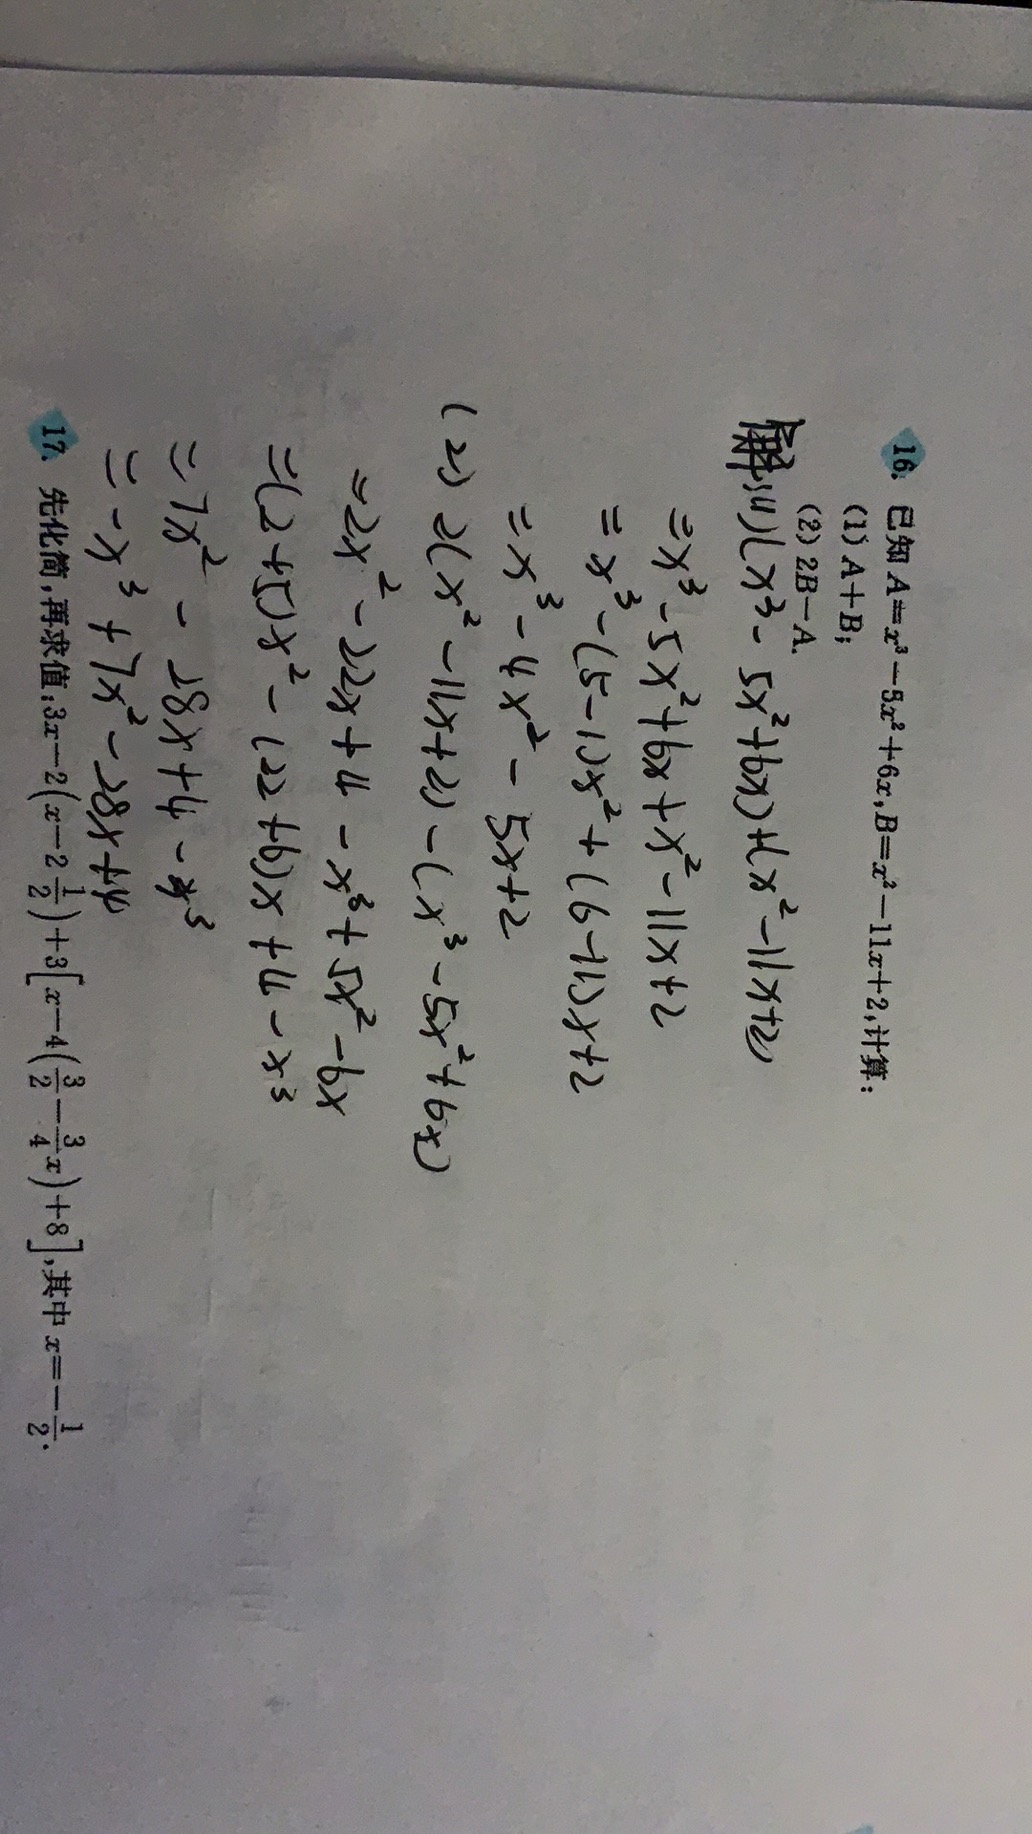 16. 已知 A=x³-5x²+6x,B=x²-11x+2,计算:
(1) A+B;
(2) 2B-A.
解:(1)(x³-5x²+6x)+(x²-11x+2)
=x³-5x²+6x+x²-11x+2
=x³-(5-1)x²+(6-11)x+2
=x³-4x²-5x+2
(2) 2(x²-11x+2)-(x³-5x²+6x)
=2x²-22x+4-x³+5x²-6x
=(2+5)x²-(22+6)x+4-x³
=7x²-28x+4-x³
=-x³+7x²-28x+4
17. 先化简,再求值:3x-2(x-2 1/2)+3[x-4(3/2-3/4x)+8],其中 x=-1/2.